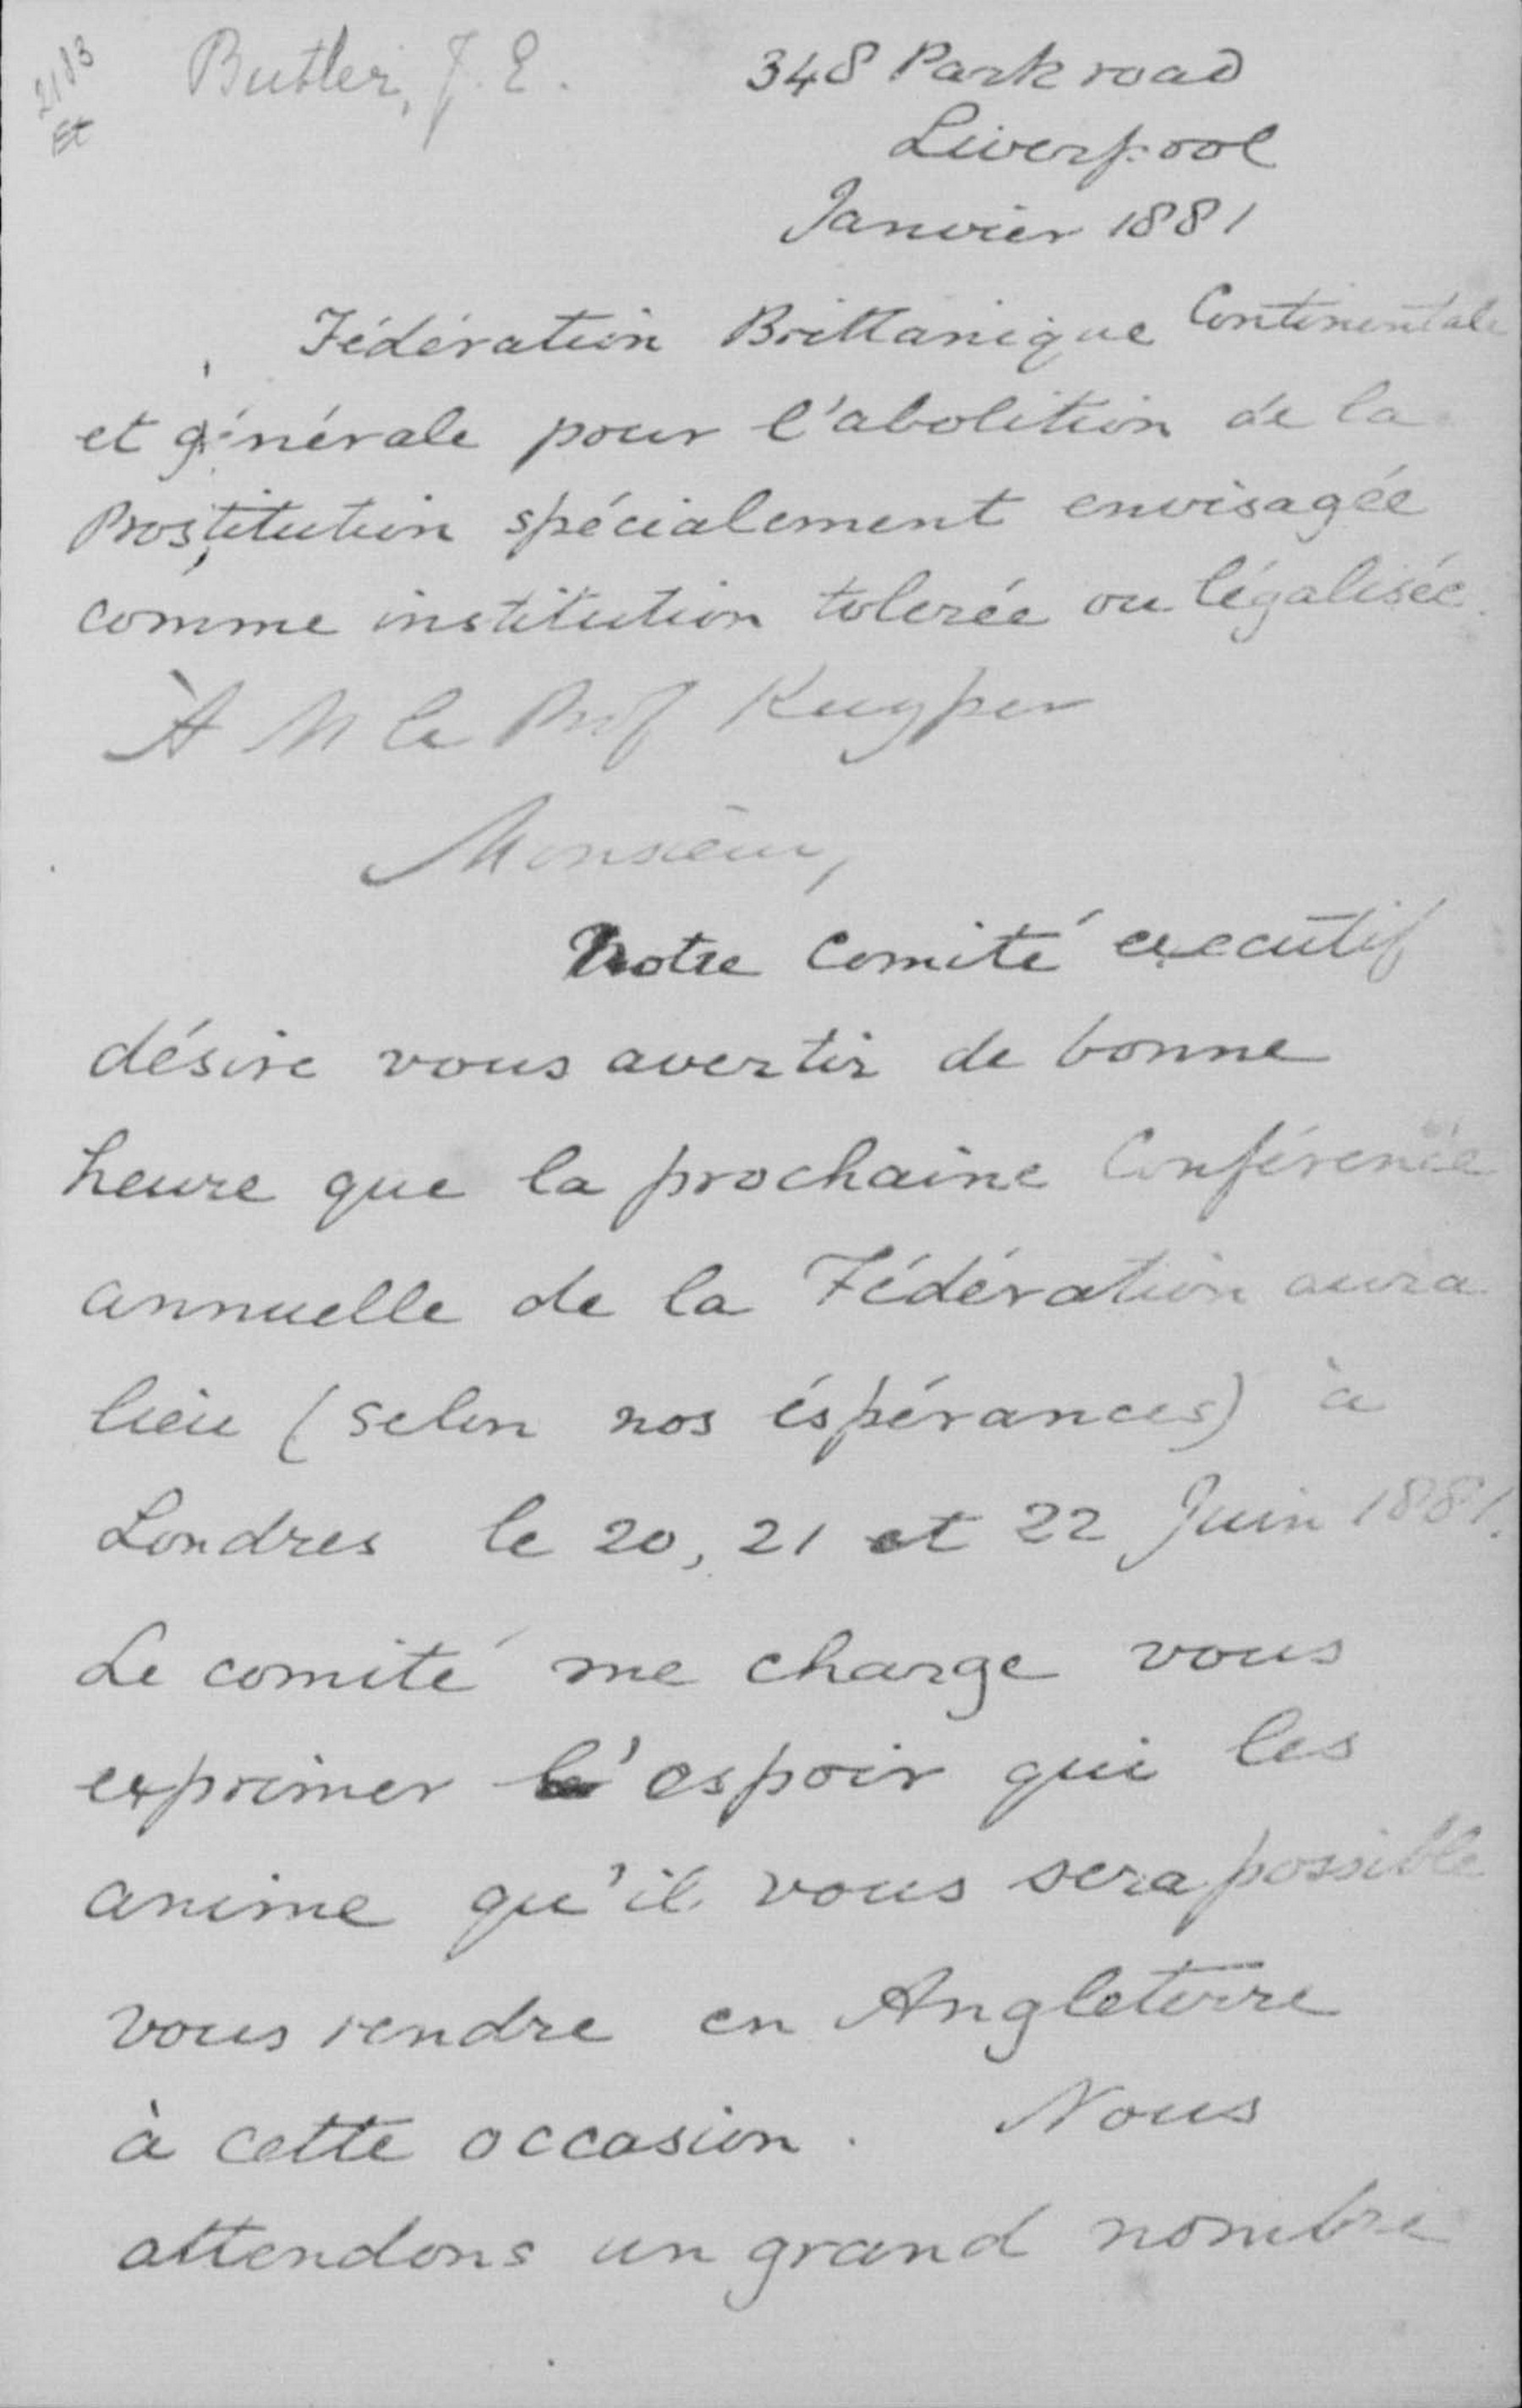 2183
Butler, J. E.
348 Park road
Liverpool
Janvier 1881
Fédération Brittanique Continentale
et générale pour l'abolition de la
Prostitution spécialement envisagée
comme institution tolerée ou légalisée.
À M le Prof Kuyper
Monsieur,
Notre Comité executif
désire vous avertir de bonne
heure que la prochaine Conférence
annuelle de la Fédération aura
lieu (selon nos éspérances) à
Londres le 20, 21 et 22 Juin 1881.
Le comité me charge vous
exprimer l'espoir qui les
anime qu'il vous sera possible
vous rendre en Angleterre
à cette occasion. Nous
attendons un grand nombre